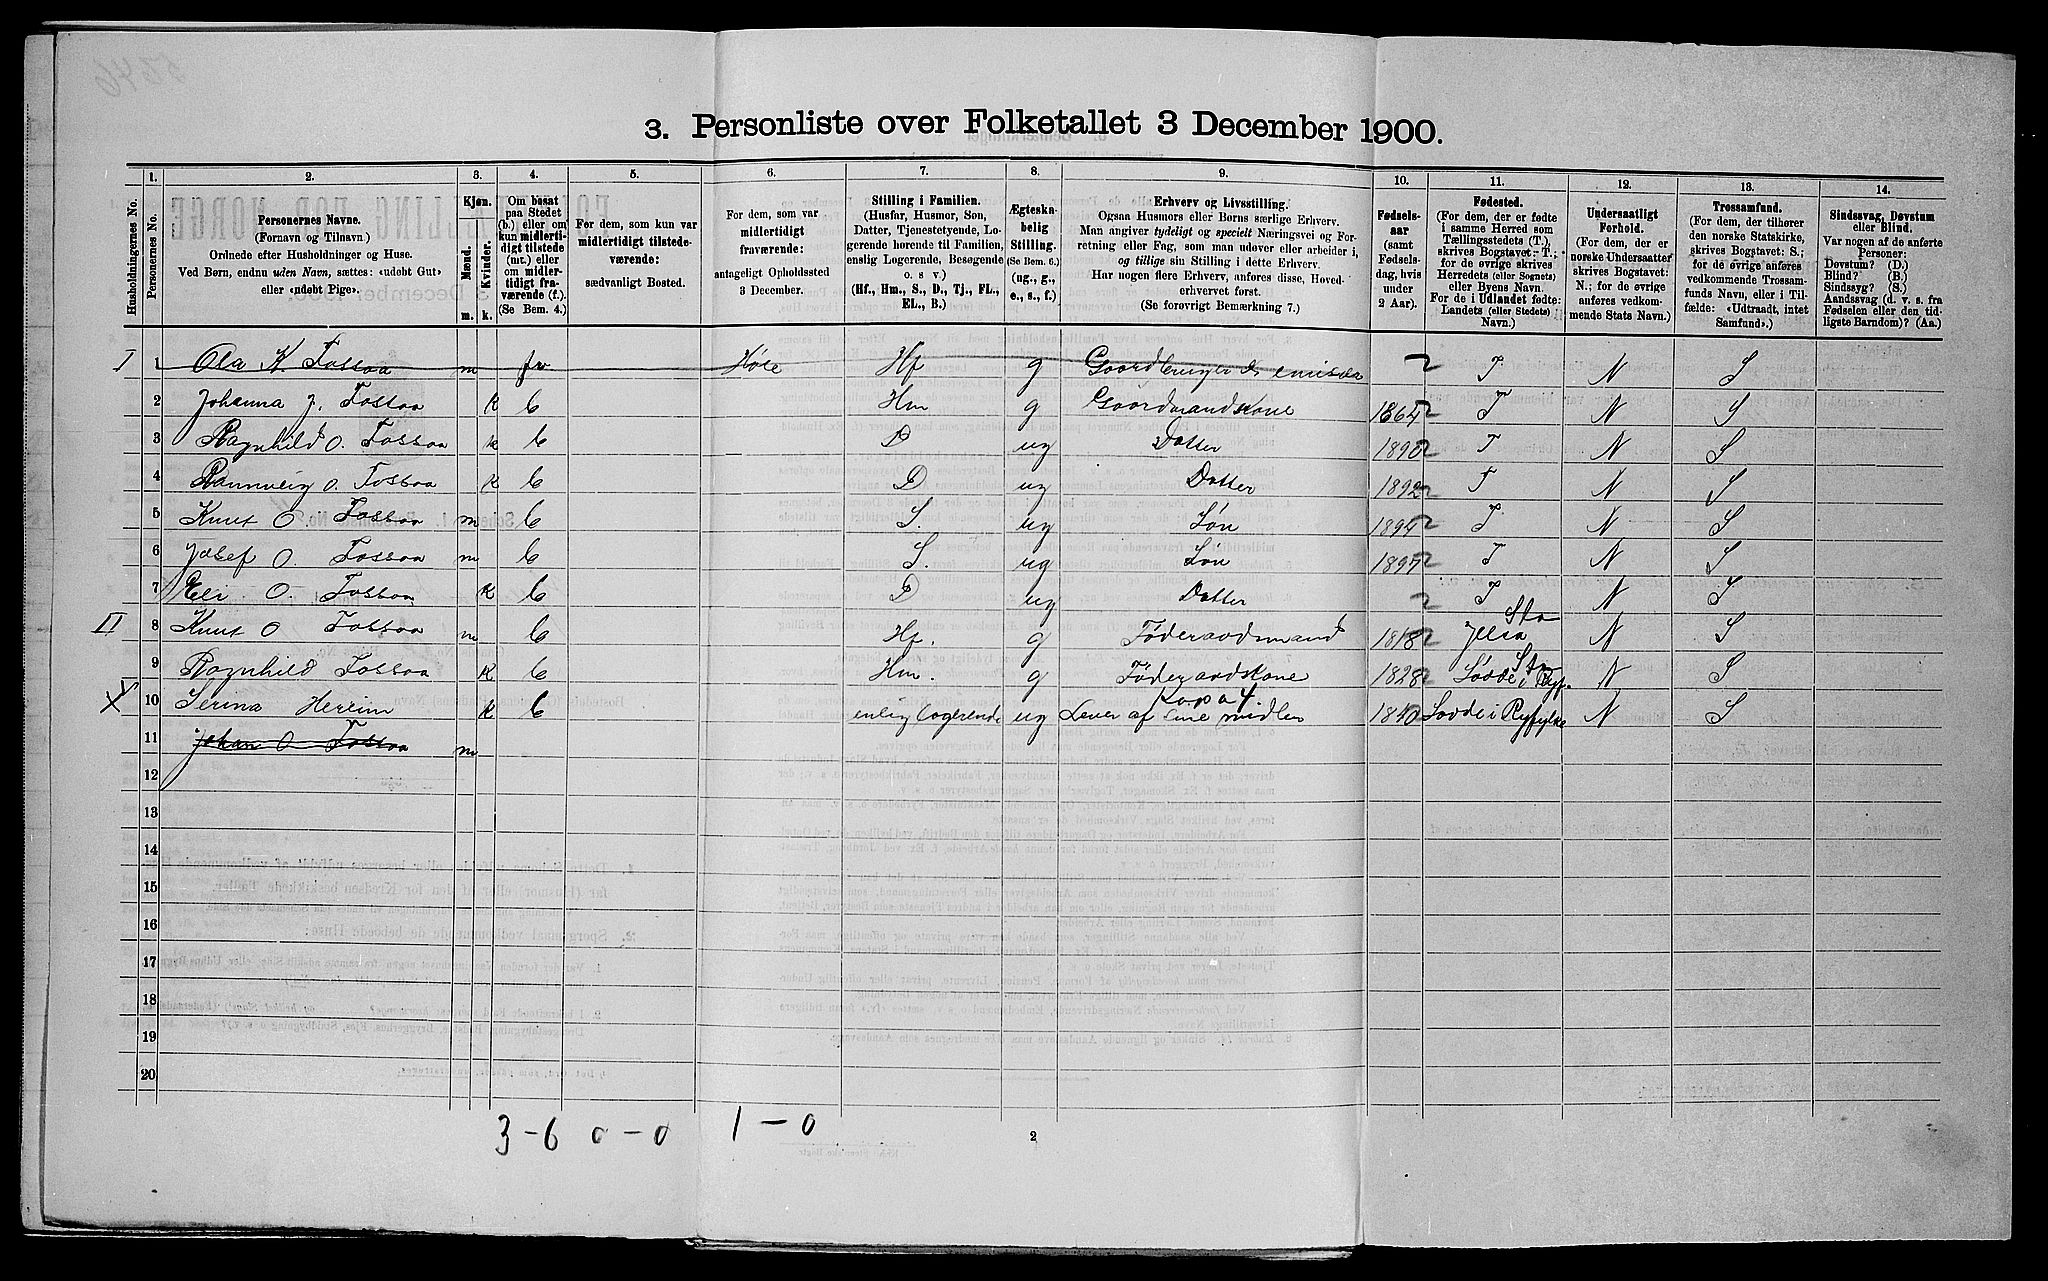 3. Personliste over Folketallet 3 December 1900.
Husholdningernes No.
1.
Personernes No.
2.
Personernes Navne.
(Fornavn og Tilnavn.)
Ordnede efter Husholdninger og Huse.
Ved Børn, endnu uden Navn, sættes: «udøbt Gut»
eller «udøbt Pige».
3.
Kjøn.
Mænd.
Kvinder.
m. k.
4.
Om bosat
paa Stedet
(b.) eller om
kun midlerti-
digt tilstede
(mt.) eller
om midler-
tidigt fra-
værende (f.).
(Se Bem. 4.)
5.
For dem, som kun var
midlertidigt tilstede-
værende:
sædvanligt Bosted.
6.
For dem, som var
midlertidigt
fraværende:
antageligt Opholdssted
3 December.
7.
Stilling i Familien.
(Husfar, Husmor, Søn,
Datter, Tjenestetyende, Lo-
gerende hørende til Familien,
enslig Logerende, Besøgende
o. s v.)
(Hf., Hm., S., D., Tj., FL.,
EL., B.)
8.
Ægteska-
belig
Stilling.
(Se Bem. 6.)
(ug., g.,
e., s., f.)
9.
Erhverv og Livsstilling.
Ogsaa Husmors eller Børns særlige Erhverv.
Man angiver tydeligt og specielt Næringsvei og For-
retning eller Fag, som man udøver eller arbeider i,
og tillige sin Stilling i dette Erhverv.
Har nogen flere Erhverv, anføres disse, Hoved-
erhvervet først.
(Se forøvrigt Bemærkning 7.)
10.
Fødsels-
aar
(samt
Fødsels-
dag, hvis
under
2 Aar).
11.
Fødested.
(For dem, der er fødte
i samme Herred som
Tællingsstedets (T.),
skrives Bogstavet: T.;
for de øvrige skrives
Herredets (eller Sognets)
eller Byens Navn.
For de i Udlandet fødte:
Landets (eller Stedets)
Navn.)
12.
Undersaatligt
Forhold.
(For dem, der er
norske Undersaatter
skrives Bogstavet:
N.; for de øvrige
anføres vedkom-
mende Stats Navn.)
13.
Trossamfund.
(For dem, der tilhører
den norske Statskirke,
skrives Bogstavet: S.;
for de øvrige anføres
vedkommende Trossam-
funds Navn, eller i Til-
fælde: «Udtraadt, intet
Samfund».)
14.
Sindssvag, Døvstum
eller Blind.
Var nogen af de anførte
Personer:
Døvstum? (D.)
Blind? (B.)
Sindssyg? (S.)
Aandssvag (d. v. s. fra
Fødselen eller den tid-
ligste Barndom)? (Aa.)
I 1 Ola K. Fossaa m fr Høle Hf g 2 T N S
2 Johanna J. Fossaa k b Hm g Gaardmandskone 1864 2 T N S
3 Ragnhild O. Fossaa k b D ug Datter 1890 2 T N S
4 Rannveig O. Fossaa k b D ug Datter 1892 2 T N S
5 Knut O Fossaa m b S. ug Søn 1894 2 T N S
6 Josef O. Fossaa m b S. ug Søn 1897 2 T N S
7 Eli O. Fossaa k b D ug Datter 2 T N S
II 8 Knut O Fossaa m b Hf. g Føderaadsmand 1818 2 Jelsa Sta N S
9 Ragnhild Fossaa k b Hm. g Føderaadskone 1828 2 Sta N S
X 10 Serina Herrim k b enlig logerende ug Lever af sine midler Kapa 4 1840 i Ryfylke N S
11 Johan O Fossaa m
12
13
14
15
16
17
18
19
20
3-6 0-0 1-0
2